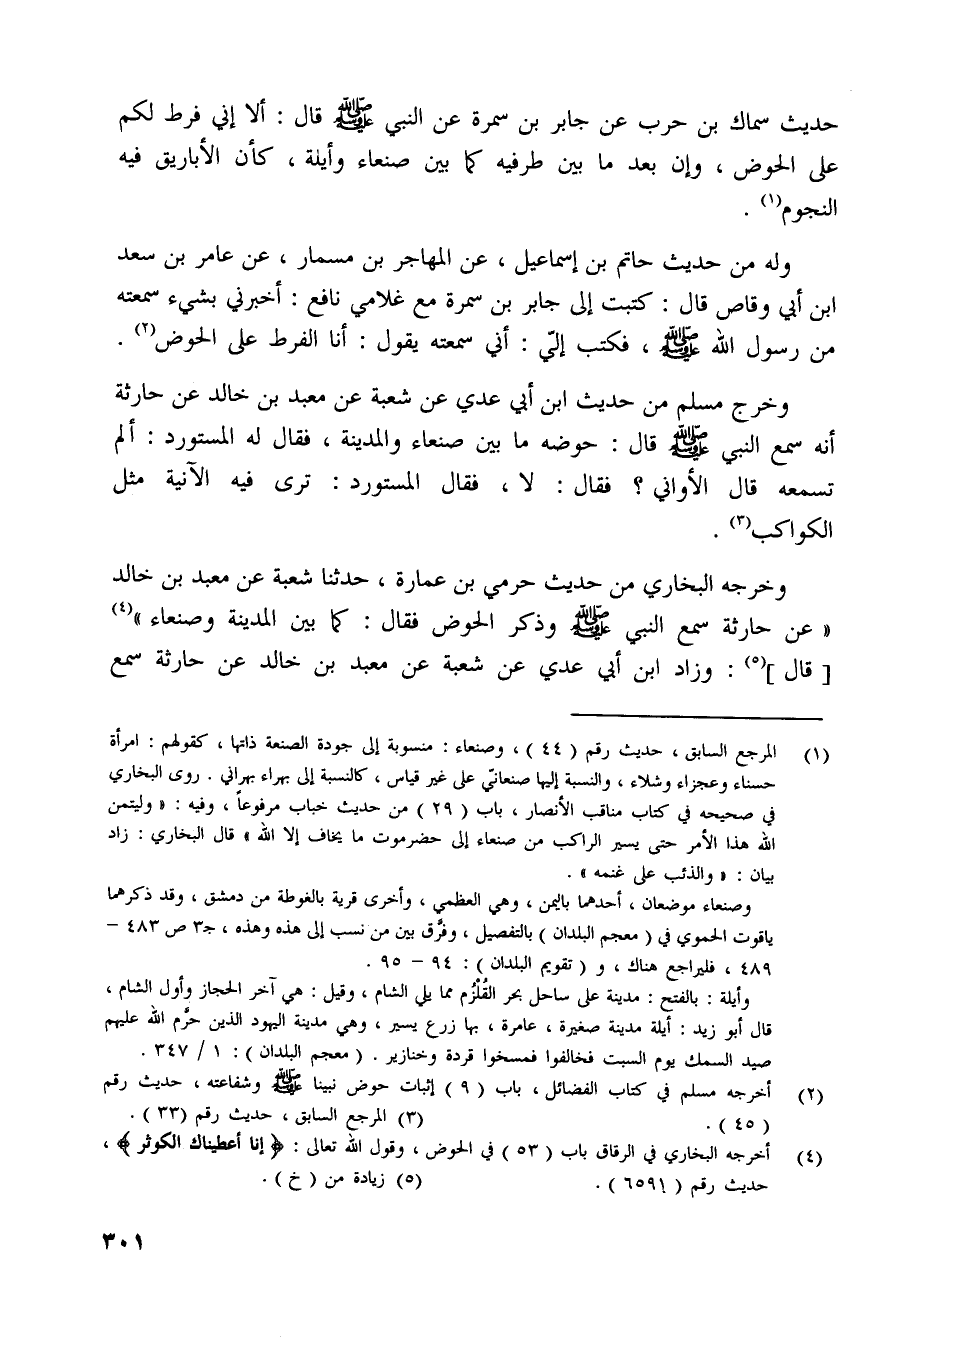 حديث سماك بن حرب عن جابر بن سمرة عن النبي ﷺ قال : ألا إني فرط لكم
على الحوض ، وإن بعد ما بين طرفيه كما بين صنعاء وأيلة ، كأن الأباريق فيه
النجوم(١) .
وله من حديث حاتم بن إسماعيل ، عن المهاجر بن مسمار ، عن عامر بن سعد
ابن أبي وقاص قال : كتبت إلى جابر بن سمرة مع غلامي نافع : أخبرني بشيء سمعته
من رسول الله ﷺ ، فكتب إليّ : أني سمعته يقول : أنا الفرط على الحوض(٢) .
وخرج مسلم من حديث ابن أبي عدي عن شعبة عن معبد بن خالد عن حارثة
أنه سمع النبي ﷺ قال : حوضه ما بين صنعاء والمدينة ، فقال له المستورد : ألم
تسمعه قال الأواني ؟ فقال : لا ، فقال المستورد : ترى فيه الآنية مثل
الكواكب(٣) .
وخرجه البخاري من حديث حرمي بن عمارة ، حدثنا شعبة عن معبد بن خالد
« عن حارثة سمع النبي ﷺ وذكر الحوض فقال : كما بين المدينة وصنعاء »(٤)
[ قال ](٥) : وزاد ابن أبي عدي عن شعبة عن معبد بن خالد عن حارثة سمع
(١) المرجع السابق ، حديث رقم ( ٤٤ ) ، وصنعاء : منسوبة إلى جودة الصنعة ذاتها ، كقولهم : امرأة
حسناء وعجزاء وشلاء ، والنسبة إليها صنعانيّ على غير قياس ، كالنسبة إلى بهراء بهراني . روى البخاري
في صحيحه في كتاب مناقب الأنصار ، باب ( ٢٩ ) من حديث خباب مرفوعاً ، وفيه : « وليتمن
الله هذا الأمر حتى يسير الراكب من صنعاء إلى حضرموت ما يخاف إلا الله » قال البخاري : زاد
بيان : « والذئب على غنمه » .
وصنعاء موضعان ، أحدهما باليمن ، وهي العظمي ، وأخرى قرية بالغوطة من دمشق ، وقد ذكرهما
ياقوت الحموي في ( معجم البلدان ) بالتفصيل ، وفرَّق بين من نسب إلى هذه وهذه ، جـ٣ ص ٤٨٣ –
٤٨٩ ، فليراجع هناك ، و ( تقويم البلدان ) : ٩٤ – ٩٥ .
وأيلة : بالفتح : مدينة على ساحل بحر القُلْزُم مما يلي الشام ، وقيل : هي آخر الحجاز وأول الشام ،
قال أبو زيد : أيلة مدينة صغيرة ، عامرة ، بها زرع يسير ، وهي مدينة اليهود الذين حرَّم الله عليهم
صيد السمك يوم السبت فخالفوا فمسخوا قردة وخنازير . ( معجم البلدان ) : ١ / ٣٤٧ .
(٢) أخرجه مسلم في كتاب الفضائل ، باب ( ٩ ) إثبات حوض نبينا ﷺ وشفاعته ، حديث رقم
( ٤٥ ) . (٣) المرجع السابق ، حديث رقم (٣٣ ) .
(٤) أخرجه البخاري في الرقاق باب ( ٥٣ ) في الحوض ، وقول الله تعالى : ﴿ إنا أعطيناك الكوثر ﴾ ،
حديث رقم ( ٦٥٩١ ) . (٥) زيادة من ( خ ) .
٣٠١